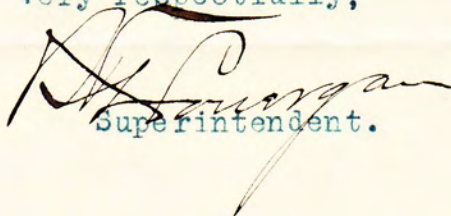 Very respectfully,
Superintendent.